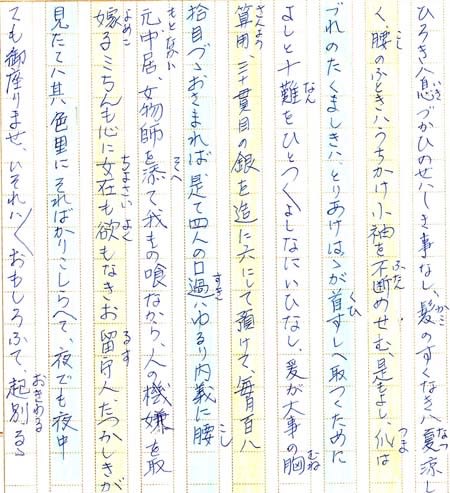 ひろき人息づかひのせハしき事なし、髪のすくなきハ夏涼し
く、腰のふときハうちかけ小袖を不断めせむ、是もよし、爪は
づれのたくましきハ、とりあげばゝが首すじへ取つくために
よしと十難をひとつ〱よしなにいひなし、爰が大事の胸
算用、三十貫目の銀を造に六にして預けて、毎月百八
拾目づゝおさまれば、是て四人の口過、ゆるり内義に腰
元中居、女物師を添て、我もの喰ながら、人の機嫌を取
嫁るミちんも心に如在も欲もなきお留守人、たつかしきが
見たてハ其色里にそればかりこしらへて、夜でも夜中
ても御座りませ、いそれハ〱おもしろふて、起別るゝ